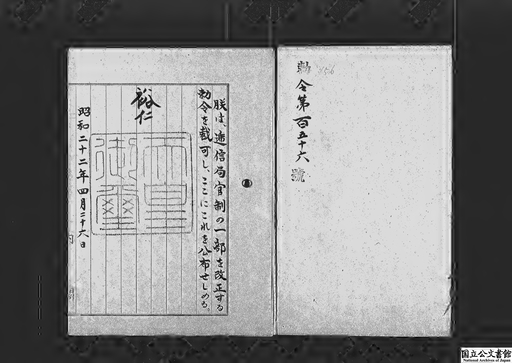 勅令第百五十六號
朕は、逓信局官制の一部を改正する
勅令を裁可し、ここにこれを公布せしめる。
裕仁
天皇
御璽
昭和二十二年四月二十六日
国立公文書館
National Archives of Japan